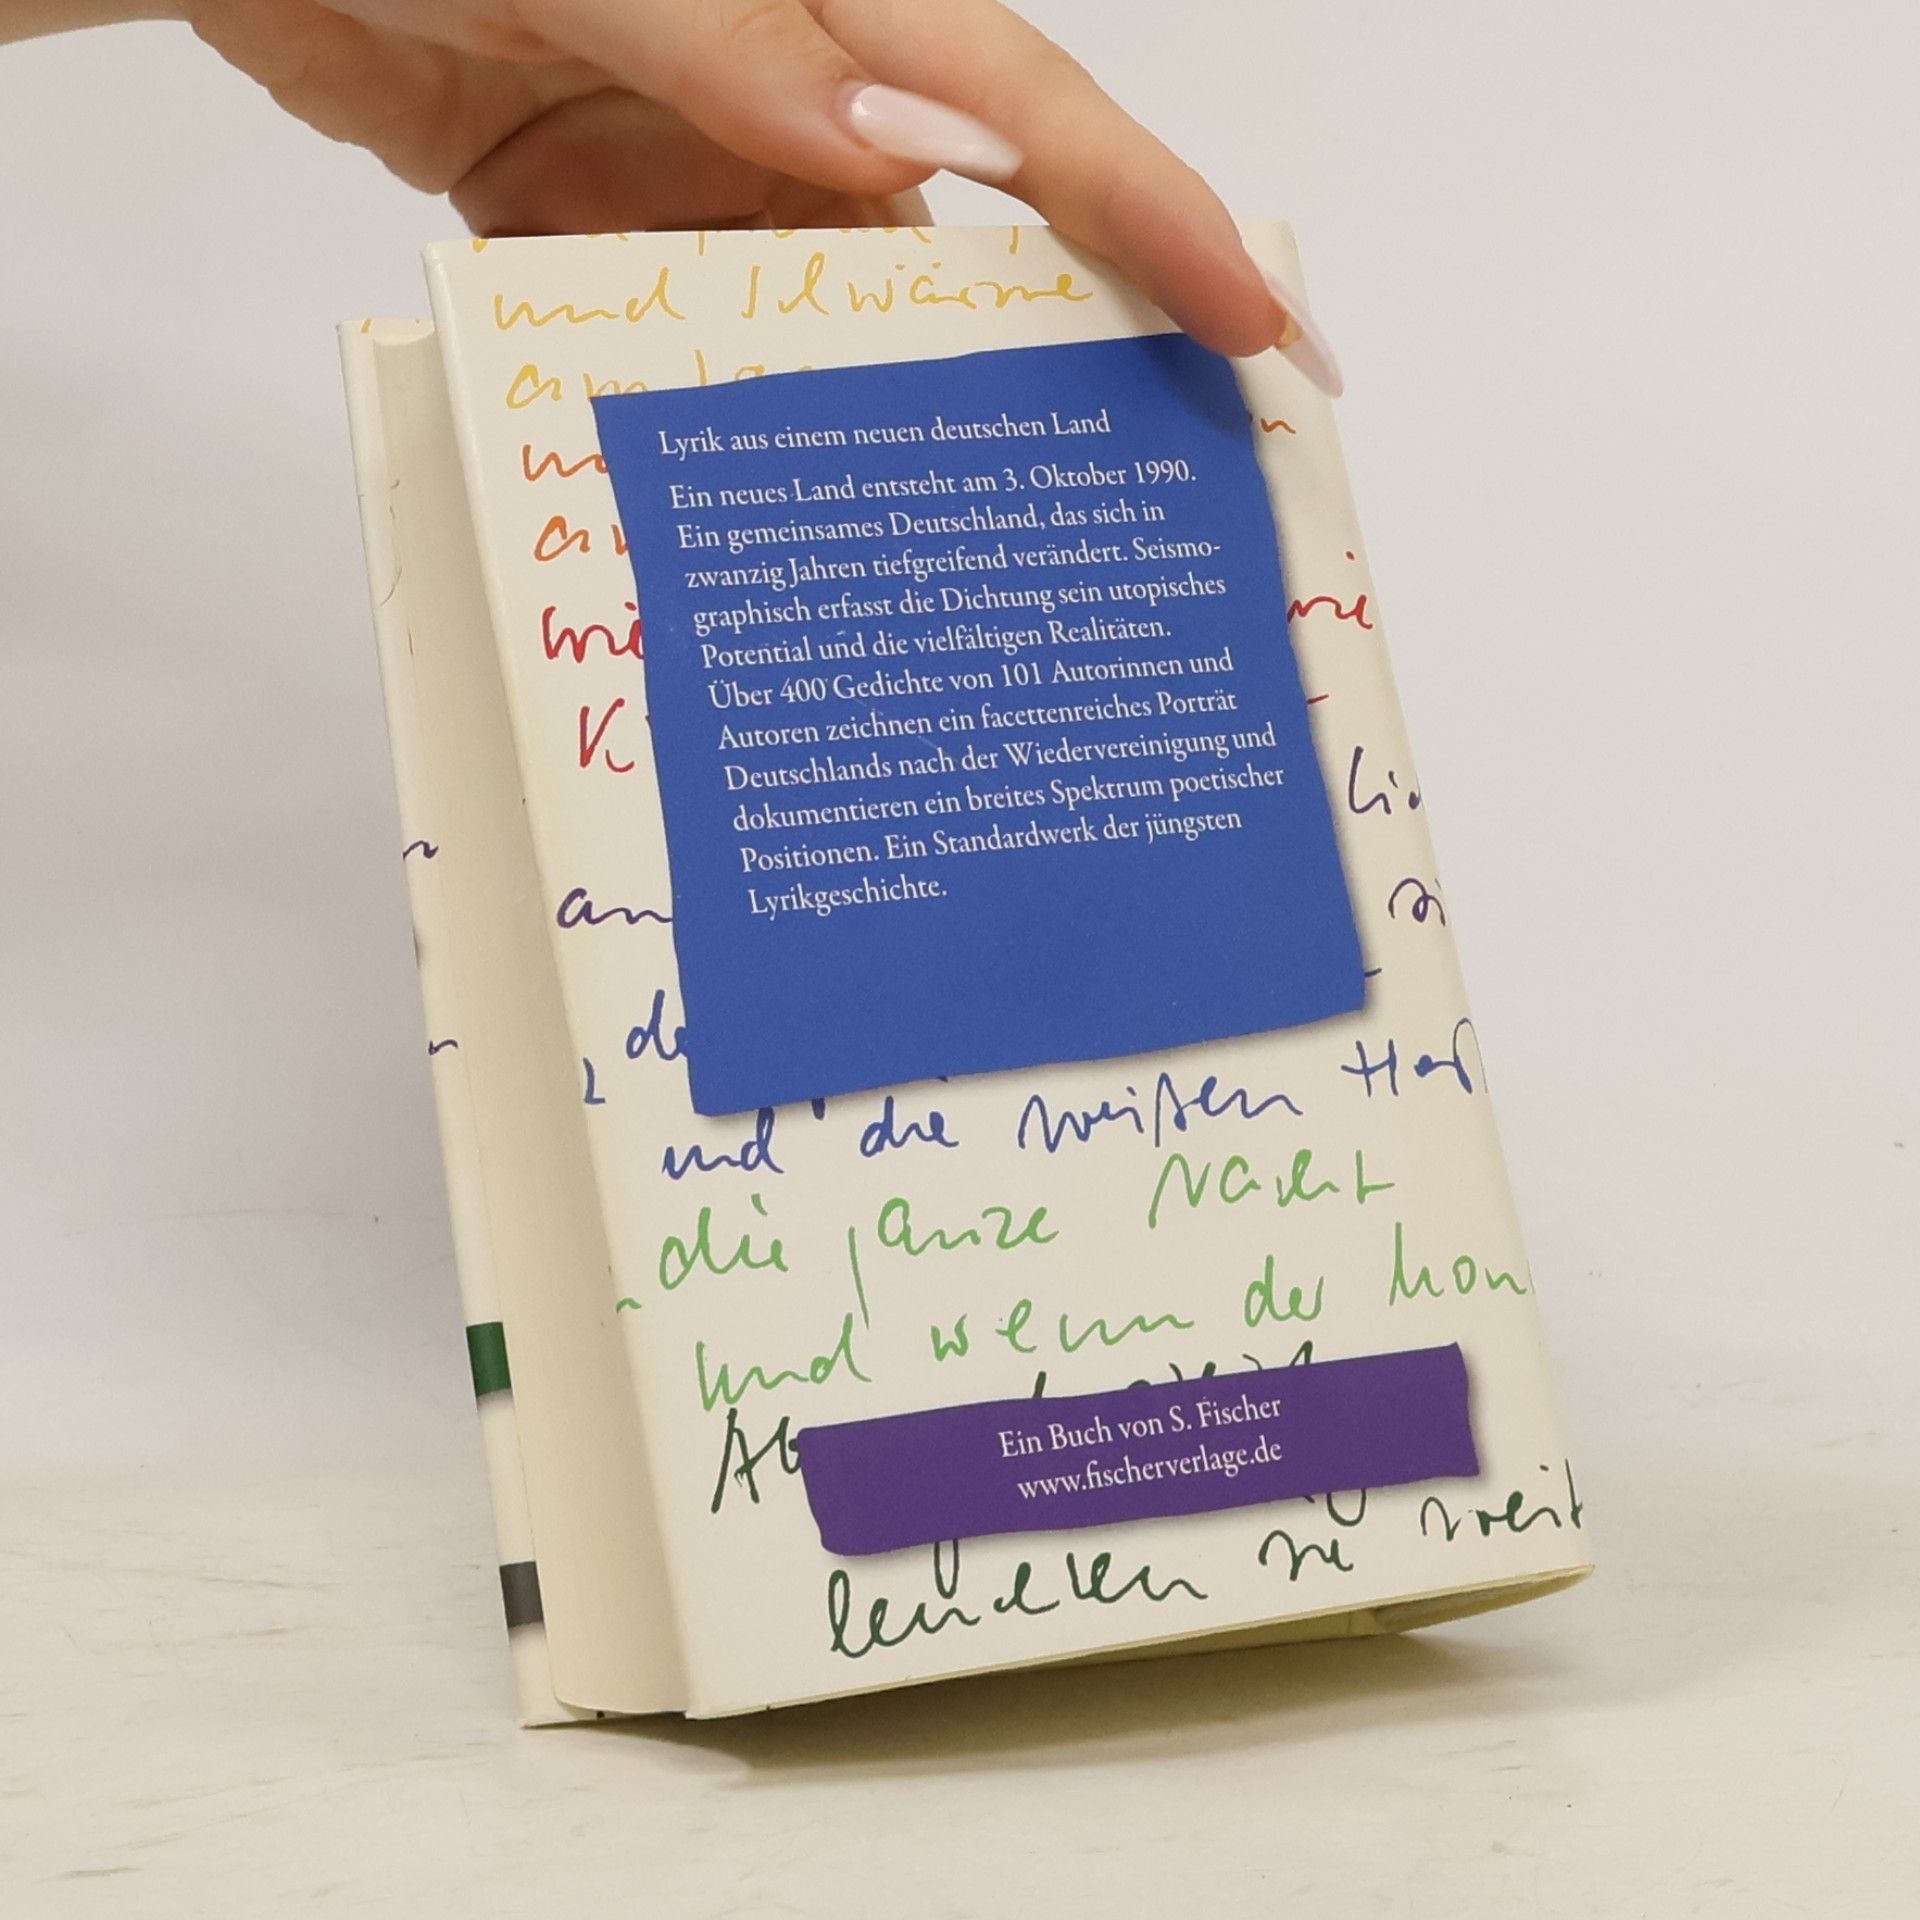 und schwärme
am
Lyrik aus einem neuen deutschen Land
Ein neues Land entsteht am 3. Oktober 1990.
Ein gemeinsames Deutschland, das sich in
zwanzig Jahren tiefgreifend verändert. Seismo-
graphisch erfasst die Dichtung sein utopisches
Potential und die vielfältigen Realitäten.
Über 400 Gedichte von 101 Autorinnen und
Autoren zeichnen ein facettenreiches Porträt
Deutschlands nach der Wiedervereinigung und
dokumentieren ein breites Spektrum poetischer
Positionen. Ein Standardwerk der jüngsten
Lyrikgeschichte.
an
und die weißen
die ganze Nacht
und wenn der
Ein Buch von S. Fischer
www.fischerverlage.de